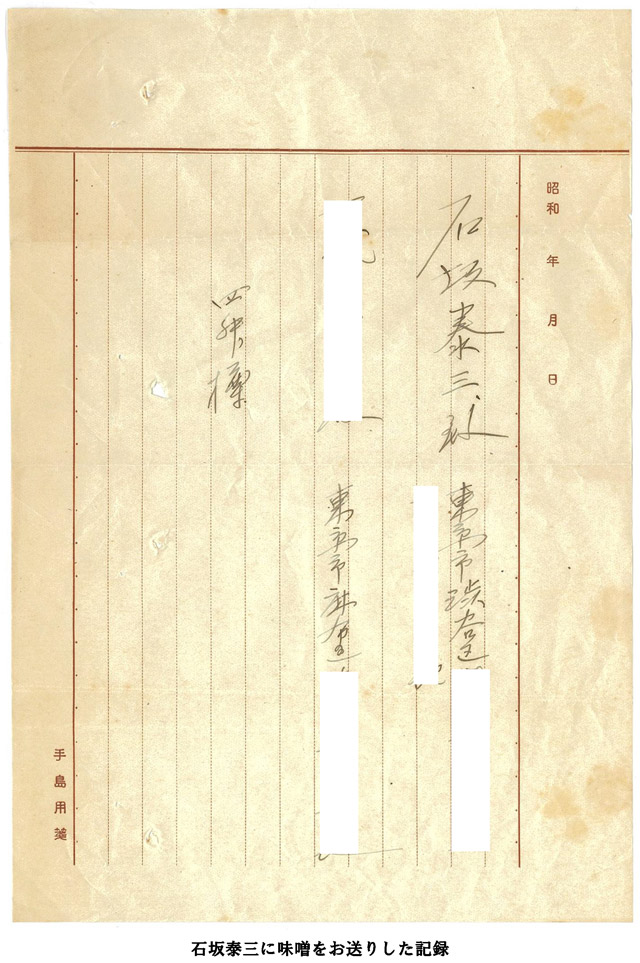 昭和 年 月 日
石坂泰三殿
東京市渋谷区
東京市
四斗樽
手島用箋
石坂泰三に味噌をお送りした記録